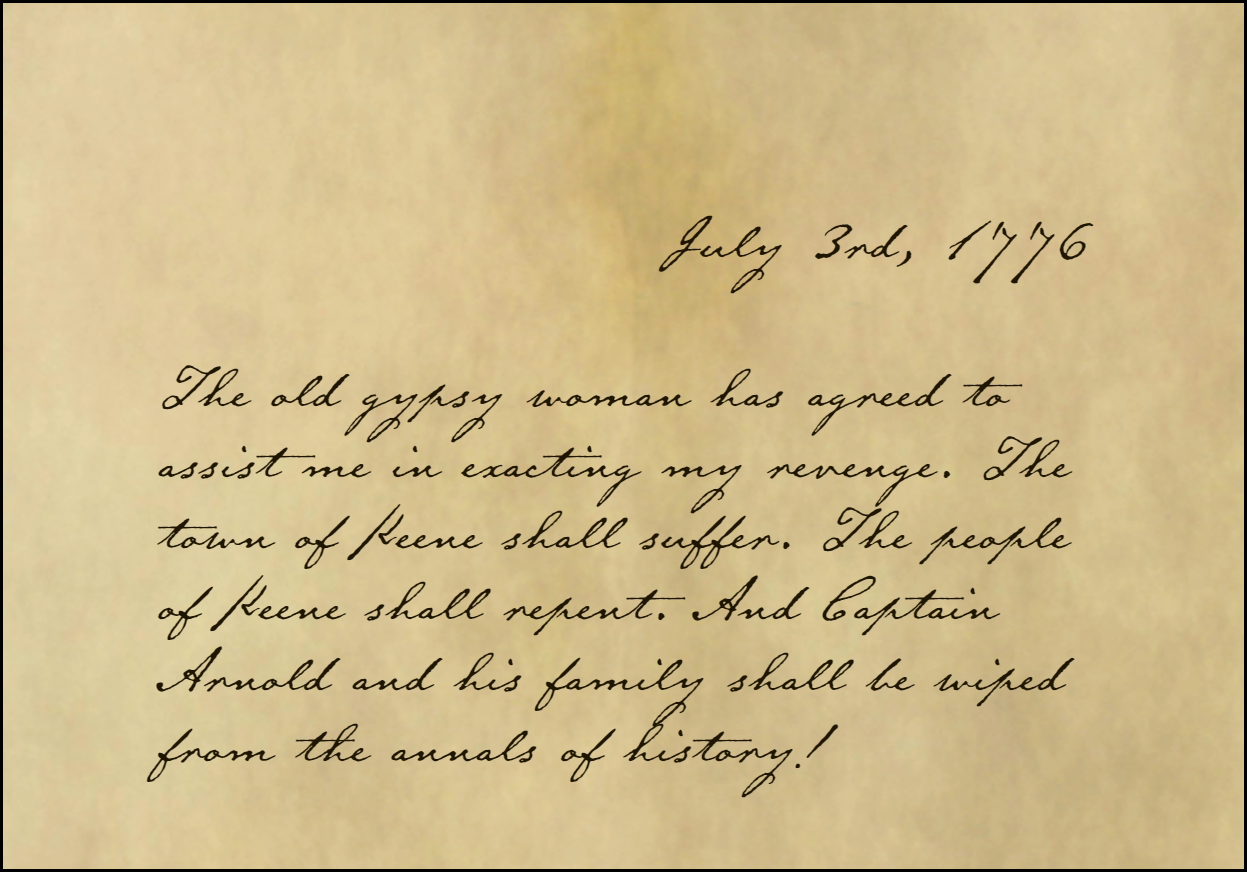 July 3rd, 1776
The old gypsy woman has agreed to
assist me in exacting my revenge. The
town of Keene shall suffer. The people
of Keene shall repent. And Captain
Arnold and his family shall be wiped
from the annals of history!